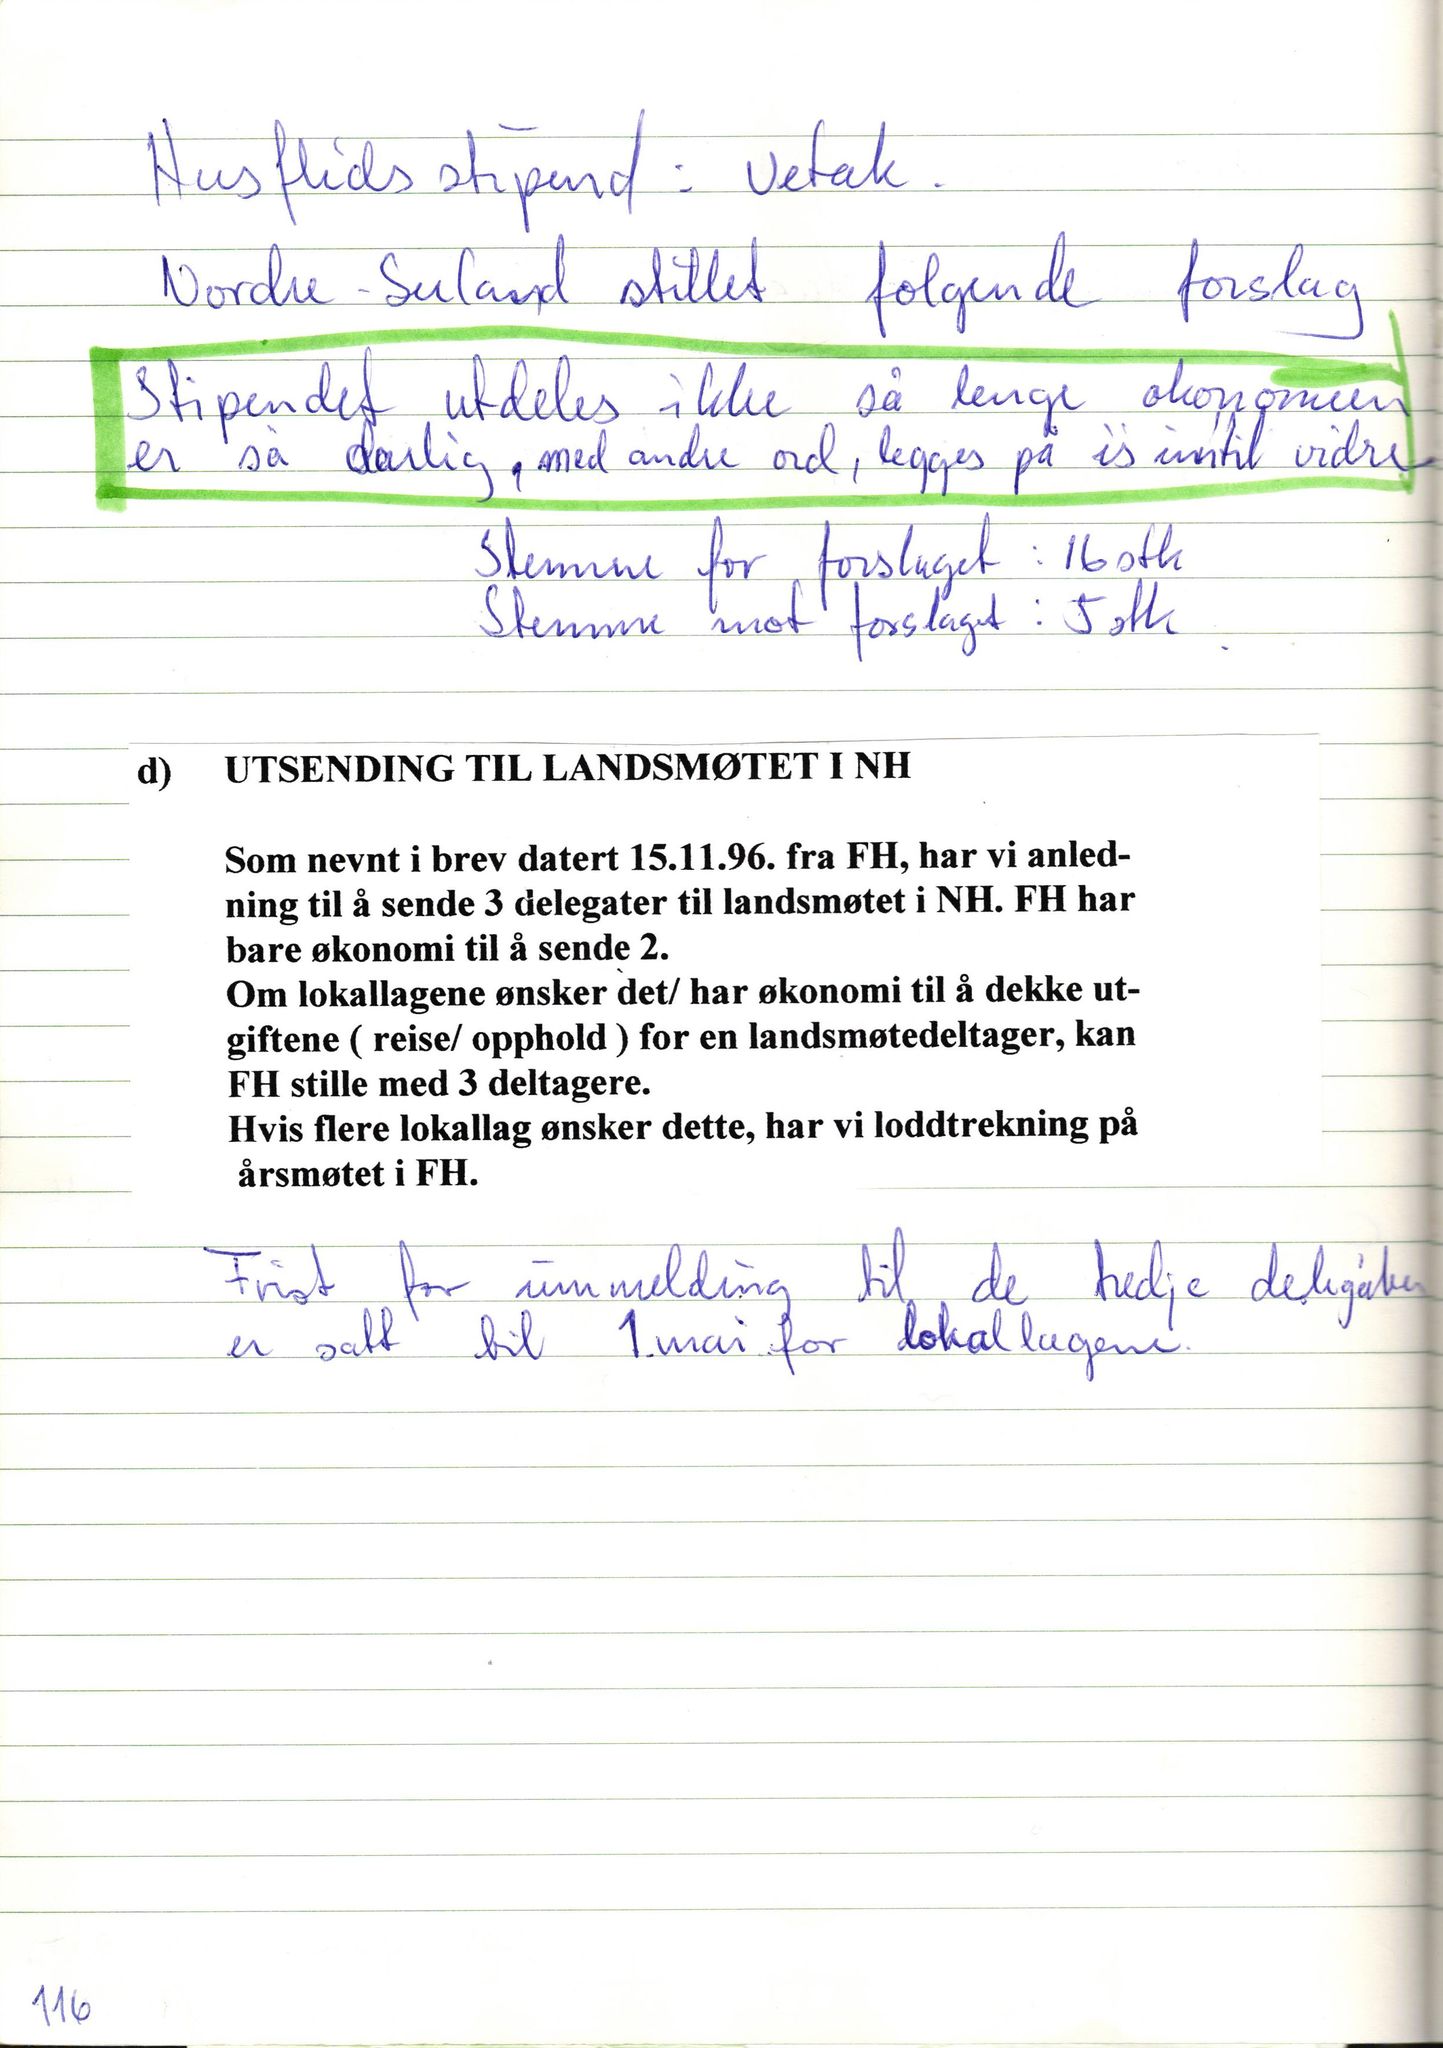 Husflidsstipend : Vetak.
Nordre-Seland stillet følgende forslag
Stipendet utdeles ikke så lenge økonomien
er så dårlig, med andre ord, legges på is inntil vidre
Stemme for forslaget : 16 stk
Stemme mot forslaget : 5 stk.
d) UTSENDING TIL LANDSMØTET I NH
Som nevnt i brev datert 15.11.96. fra FH, har vi anled-
ning til å sende 3 delegater til landsmøtet i NH. FH har
bare økonomi til å sende 2.
Om lokallagene ønsker det/ har økonomi til å dekke ut-
giftene ( reise/ opphold ) for en landsmøtedeltager, kan
FH stille med 3 deltagere.
Hvis flere lokallag ønsker dette, har vi loddtrekning på
årsmøtet i FH.
Frist for innmelding til de tredje delegaten
er satt til 1.mai for lokallagene.
116